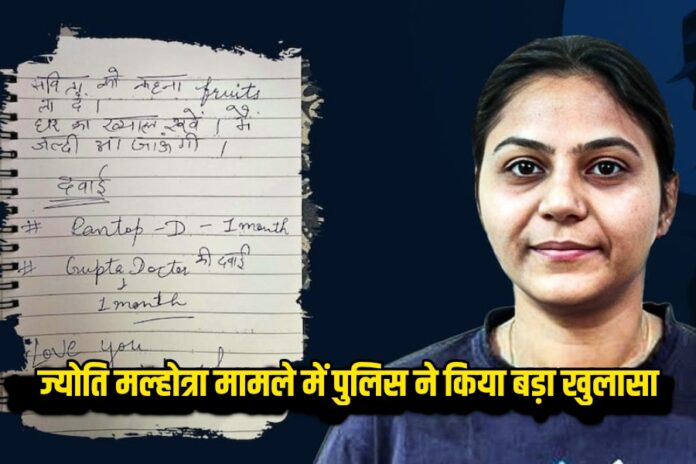 सविता को कहना fruits
ला दे ।
घर का ख्याल रखें । मैं
जल्दी आ जाऊंगी ।
दवाई
# Pantop-D - 1 month
# Gupta Doctor की दवाई
↓
1 month
Love you
ज्योति मल्होत्रा मामले में पुलिस ने किया बड़ा खुलासा